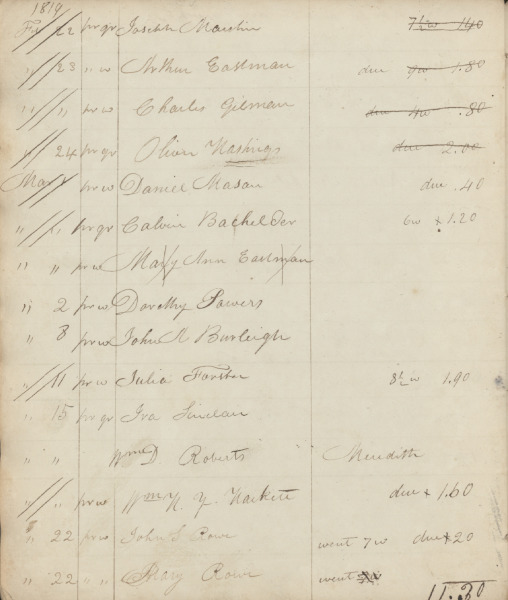 1819
Fe 22 pr qr Joseph 7½w 1.40
" 23 " w Arthur Eastman due 9w 1.80
" " pr w Charles Gilman due 4w .80
" 24 pr qr Oliver Hastings due 2.00
Mar 1 pr w Daniel Mason due .40
" " pr qr Calvin Bachelder 6w x 1.20
" " pr w Mary Ann Eastman
" 2 pr w Dorothy Powers
" 8 pr w John Burleigh
" 11 pr w Julia Forster 8½w 1.90
" 15 pr qr Ira Sinclair
" " Wm D. Roberts Meredith
" " pr w Wm H. Y. Hackett due x 1.60
" 22 pr w John S Rowe went 7w due x 20
" 22 " " Mary Rowe went
11.30